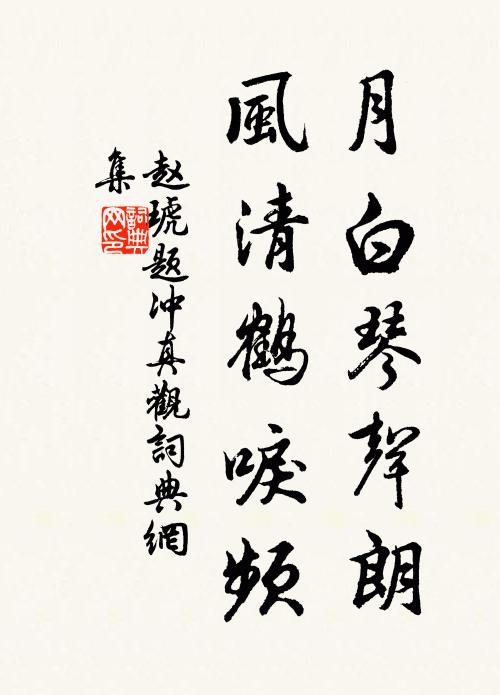 月白琴聲朗
風清鶴唳頻
赵琥题冲真觀詞典網
集
詞典
网印